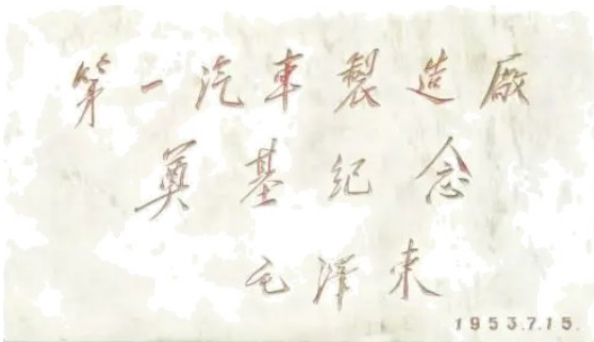 第一汽車製造廠
奠基纪念
毛泽东
1953.7.15.